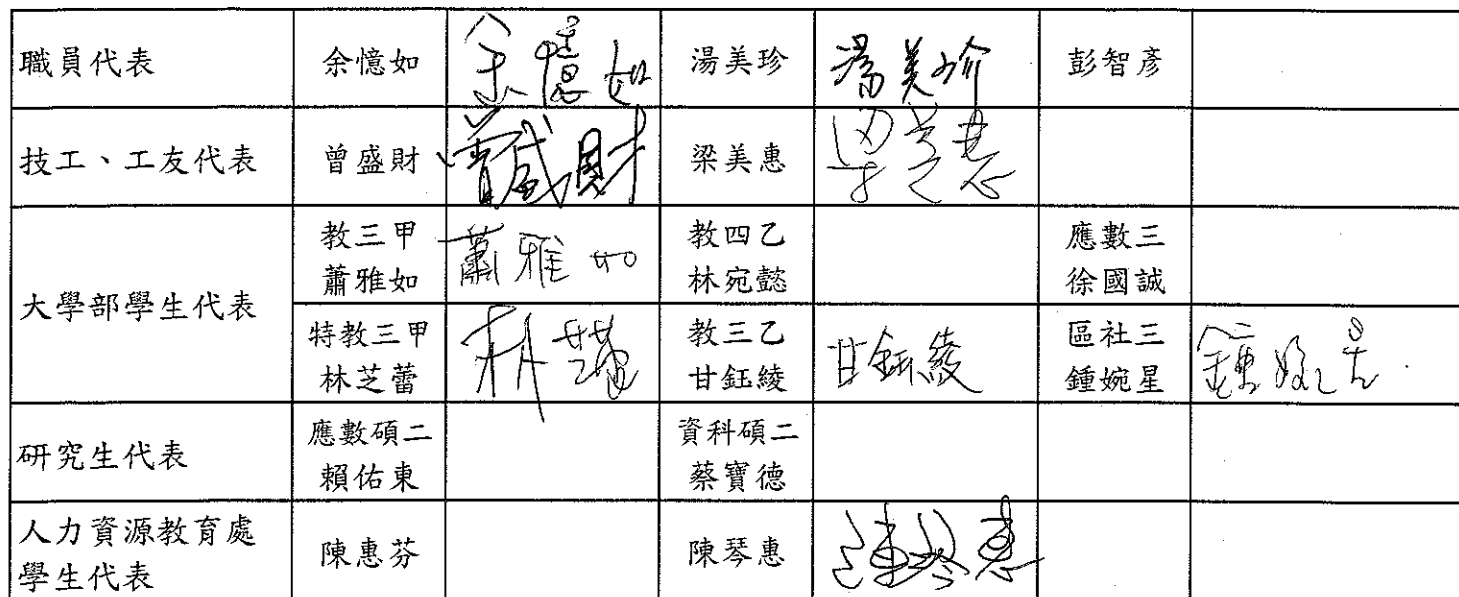 職員代表 余憶如 余憶如 湯美珍 湯美珍 彭智彥
技工、工友代表 曾盛財 曾盛財 梁美惠 梁美惠
大學部學生代表
教三甲 蕭雅如 蕭雅如
教四乙 林宛懿
應數三 徐國誠
特教三甲 林芝蕾 林芝蕾
教三乙 甘鈺綾 甘鈺綾
區社三 鍾婉星 鍾婉星
研究生代表
應數碩二 賴佑東
資科碩二 蔡寶德
人力資源教育處
學生代表
陳惠芬 陳琴惠 陳琴惠